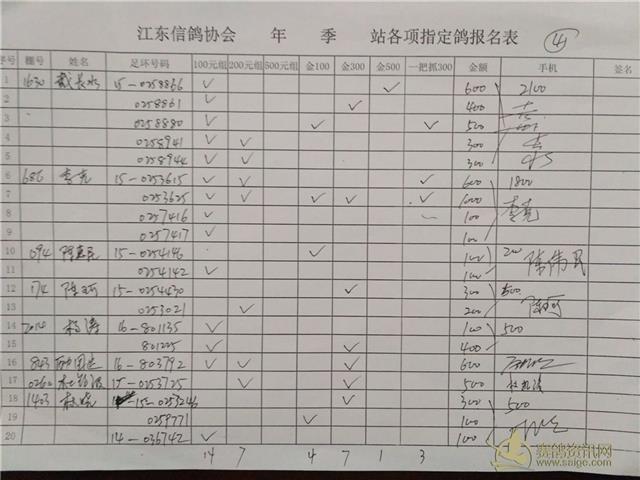 江东信鸽协会 年 季 站各项指定鸽报名表 ④
序号 棚号 姓名 足环号码 100元组 200元组 500元组 金100 金300 金500 一把抓300 金额 手机 签名
1 1630 戴长水 15-0258866 ✓ ✓ 600 2100
2 0258861 ✓ ✓ 400
3 0258880 ✓ ✓ ✓ 500
4 0258941 ✓ ✓ 300
5 0258944 ✓ ✓ 300
6 686 李克 15-0253615 ✓ ✓ ✓ 600 1800
7 0253625 ✓ ✓ ✓ ✓ ✓ 1000 李克
8 0257416 ✓ 100
9 0257417 ✓ 100
10 094 15-0254146 ✓ 100 200 陈伟民
11 0254142 ✓ 100
12 174 陈珂 15-0254430 ✓ 300 500 陈珂
13 0253021 ✓ 200
14 2014 杨涛 16-801135 ✓ 100 500
15 801225 ✓ ✓ 400
16 843 16-803792 ✓ ✓ ✓ 600
17 0260 15-0253725 ✓ ✓ 500
18 1403 15-0253246 ✓ 300 500
19 0259771 ✓ 100
20 14-036742 ✓ 100
14 7 4 7 1 3
赛鸽资讯网
www.saige.com